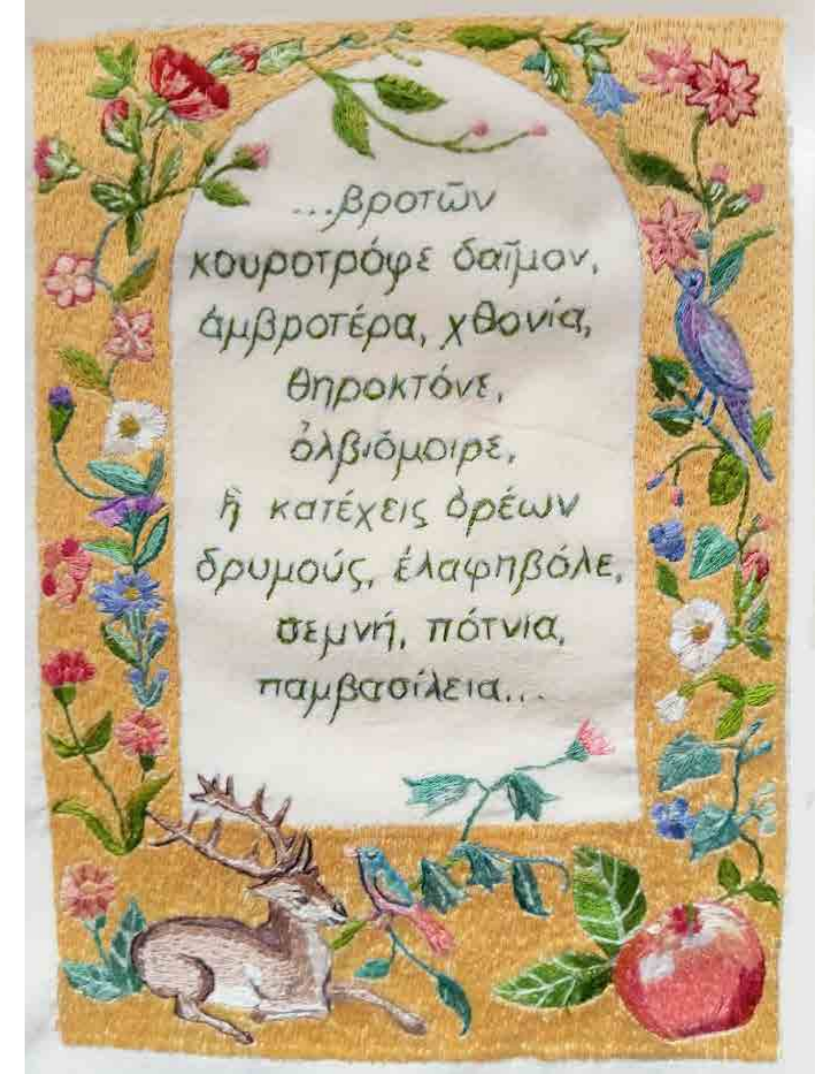 ...βροτῶν
κουροτρόφε δαῖμον,
ἀμβροτέρα, χθονία,
θηροκτόνε,
ὀλβιόμοιρε,
ἣ κατέχεις ὀρέων
δρυμούς, ἐλαφηβόλε,
σεμνή, πότνια,
παμβασίλεια...